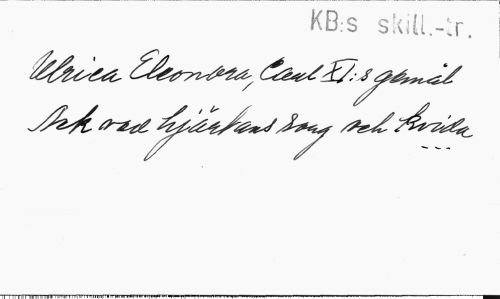 KB:s skill.-tr.
Ulrica Eleonora, Carl XI:s gemål
Ack vad hjärtans sorg och kvida
---